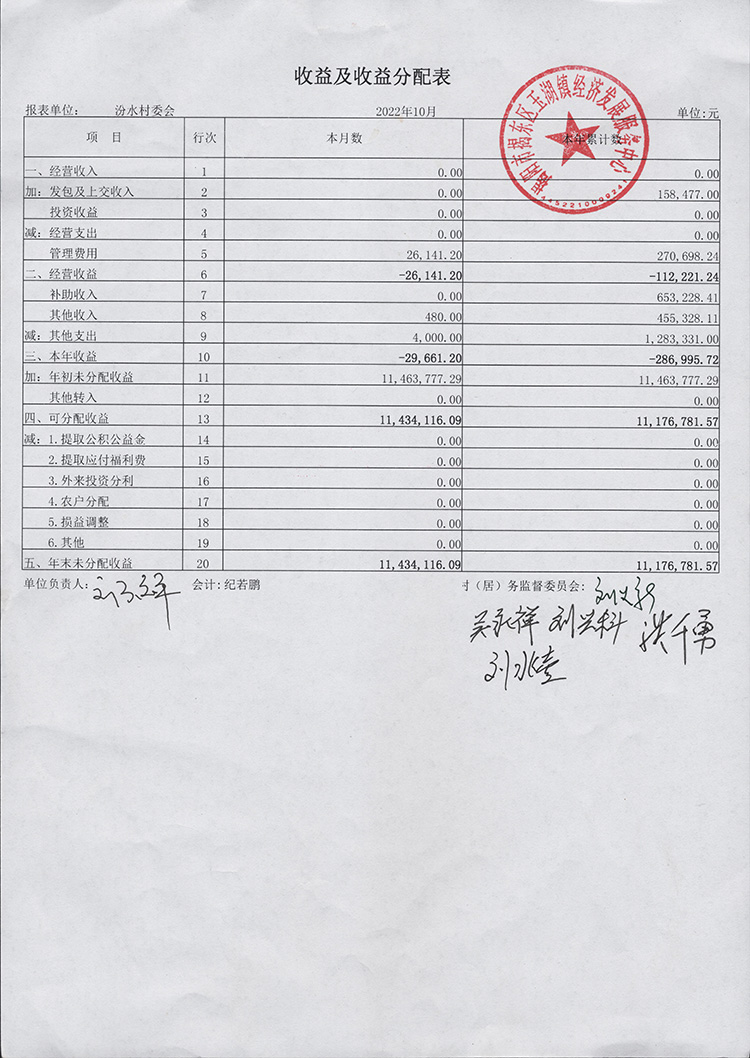 收益及收益分配表
报表单位： 汾水村委会 2022年10月 单位:元
揭阳市揭东区玉湖镇经济发展服务中心
4452210009241
项 目 行次 本月数 本年累计数
一、经营收入 1 0.00 0.00
加：发包及上交收入 2 0.00 158,477.00
投资收益 3 0.00 0.00
减：经营支出 4 0.00 0.00
管理费用 5 26,141.20 270,698.24
二、经营收益 6 -26,141.20 -112,221.24
补助收入 7 0.00 653,228.41
其他收入 8 480.00 455,328.11
减：其他支出 9 4,000.00 1,283,331.00
三、本年收益 10 -29,661.20 -286,995.72
加：年初未分配收益 11 11,463,777.29 11,463,777.29
其他转入 12 0.00 0.00
四、可分配收益 13 11,434,116.09 11,176,781.57
减：1.提取公积公益金 14 0.00 0.00
2.提取应付福利费 15 0.00 0.00
3.外来投资分利 16 0.00 0.00
4.农户分配 17 0.00 0.00
5.损益调整 18 0.00 0.00
6.其他 19 0.00 0.00
五、年末未分配收益 20 11,434,116.09 11,176,781.57
单位负责人： 会计：纪若鹏 村（居）务监督委员会：
吴永祥 刘 洪千勇
刘